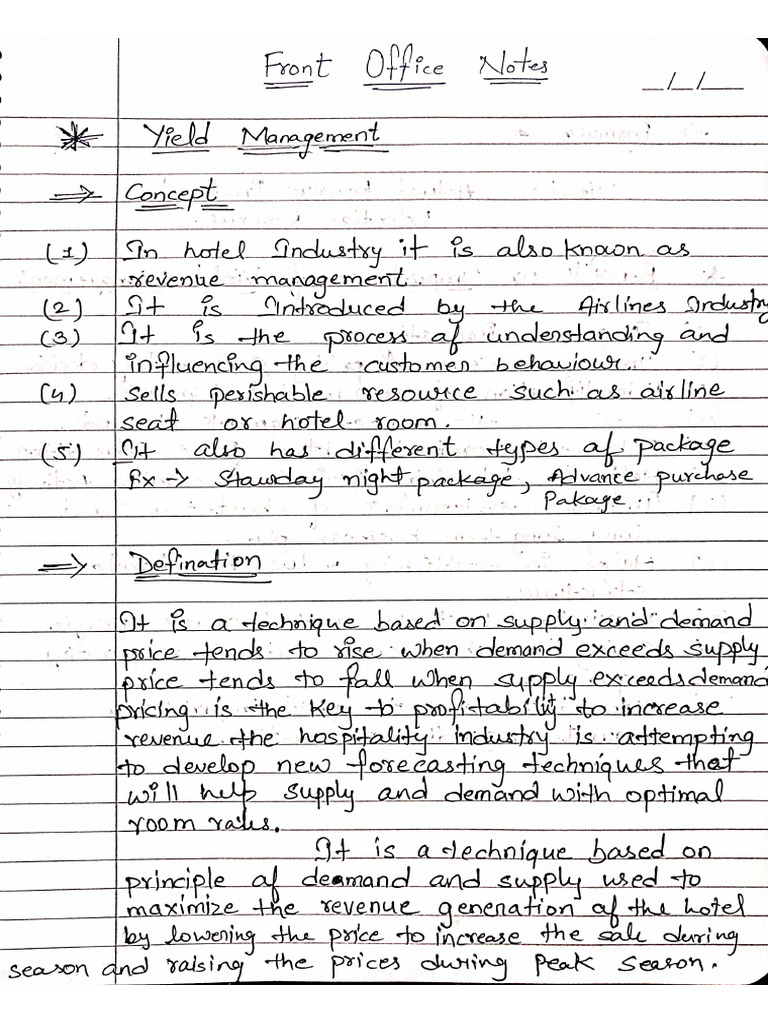 Front Office Notes
_/_/__
* Yield Management
⇒ Concept
(1) In hotel Industry it is also known as
revenue management.
(2) It is Introduced by the Airlines Industry
(3) It is the process of understanding and
influencing the customer behaviour.
(4) Sells perishable resource such as airline
seat or hotel room.
(5) It also has different types of package
Ex → Staurday night package, Advance purchase
Pakage.
⇒ Defination
It is a technique based on supply and demand
price tends to rise when demand exceeds supply
price tends to fall when supply exceeds demand
pricing is the key to profitability to increase
revenue the hospitality industry is attempting
to develop new forecasting techniques that
will help supply and demand with optimal
room rates.
It is a technique based on
principle of demand and supply used to
maximize the revenue generation of the hotel
by lowering the price to increase the sale during
season and raising the prices during Peak Season.